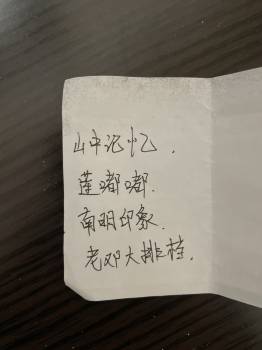 山中记忆.
莲嘟嘟.
南明印象.
老邓大排档.